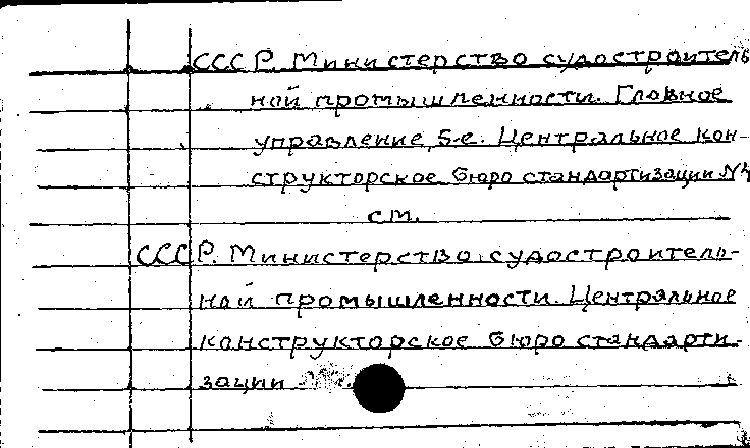 СССР. Министерство судостроитель
ной промышленности. Главное
управление, 5-е. Центральное кон-
структорское бюро стандартизации №4
см.
СССР. Министерство судостроитель-
ной промышленности. Центральное
конструкторское бюро стандарти-
зации